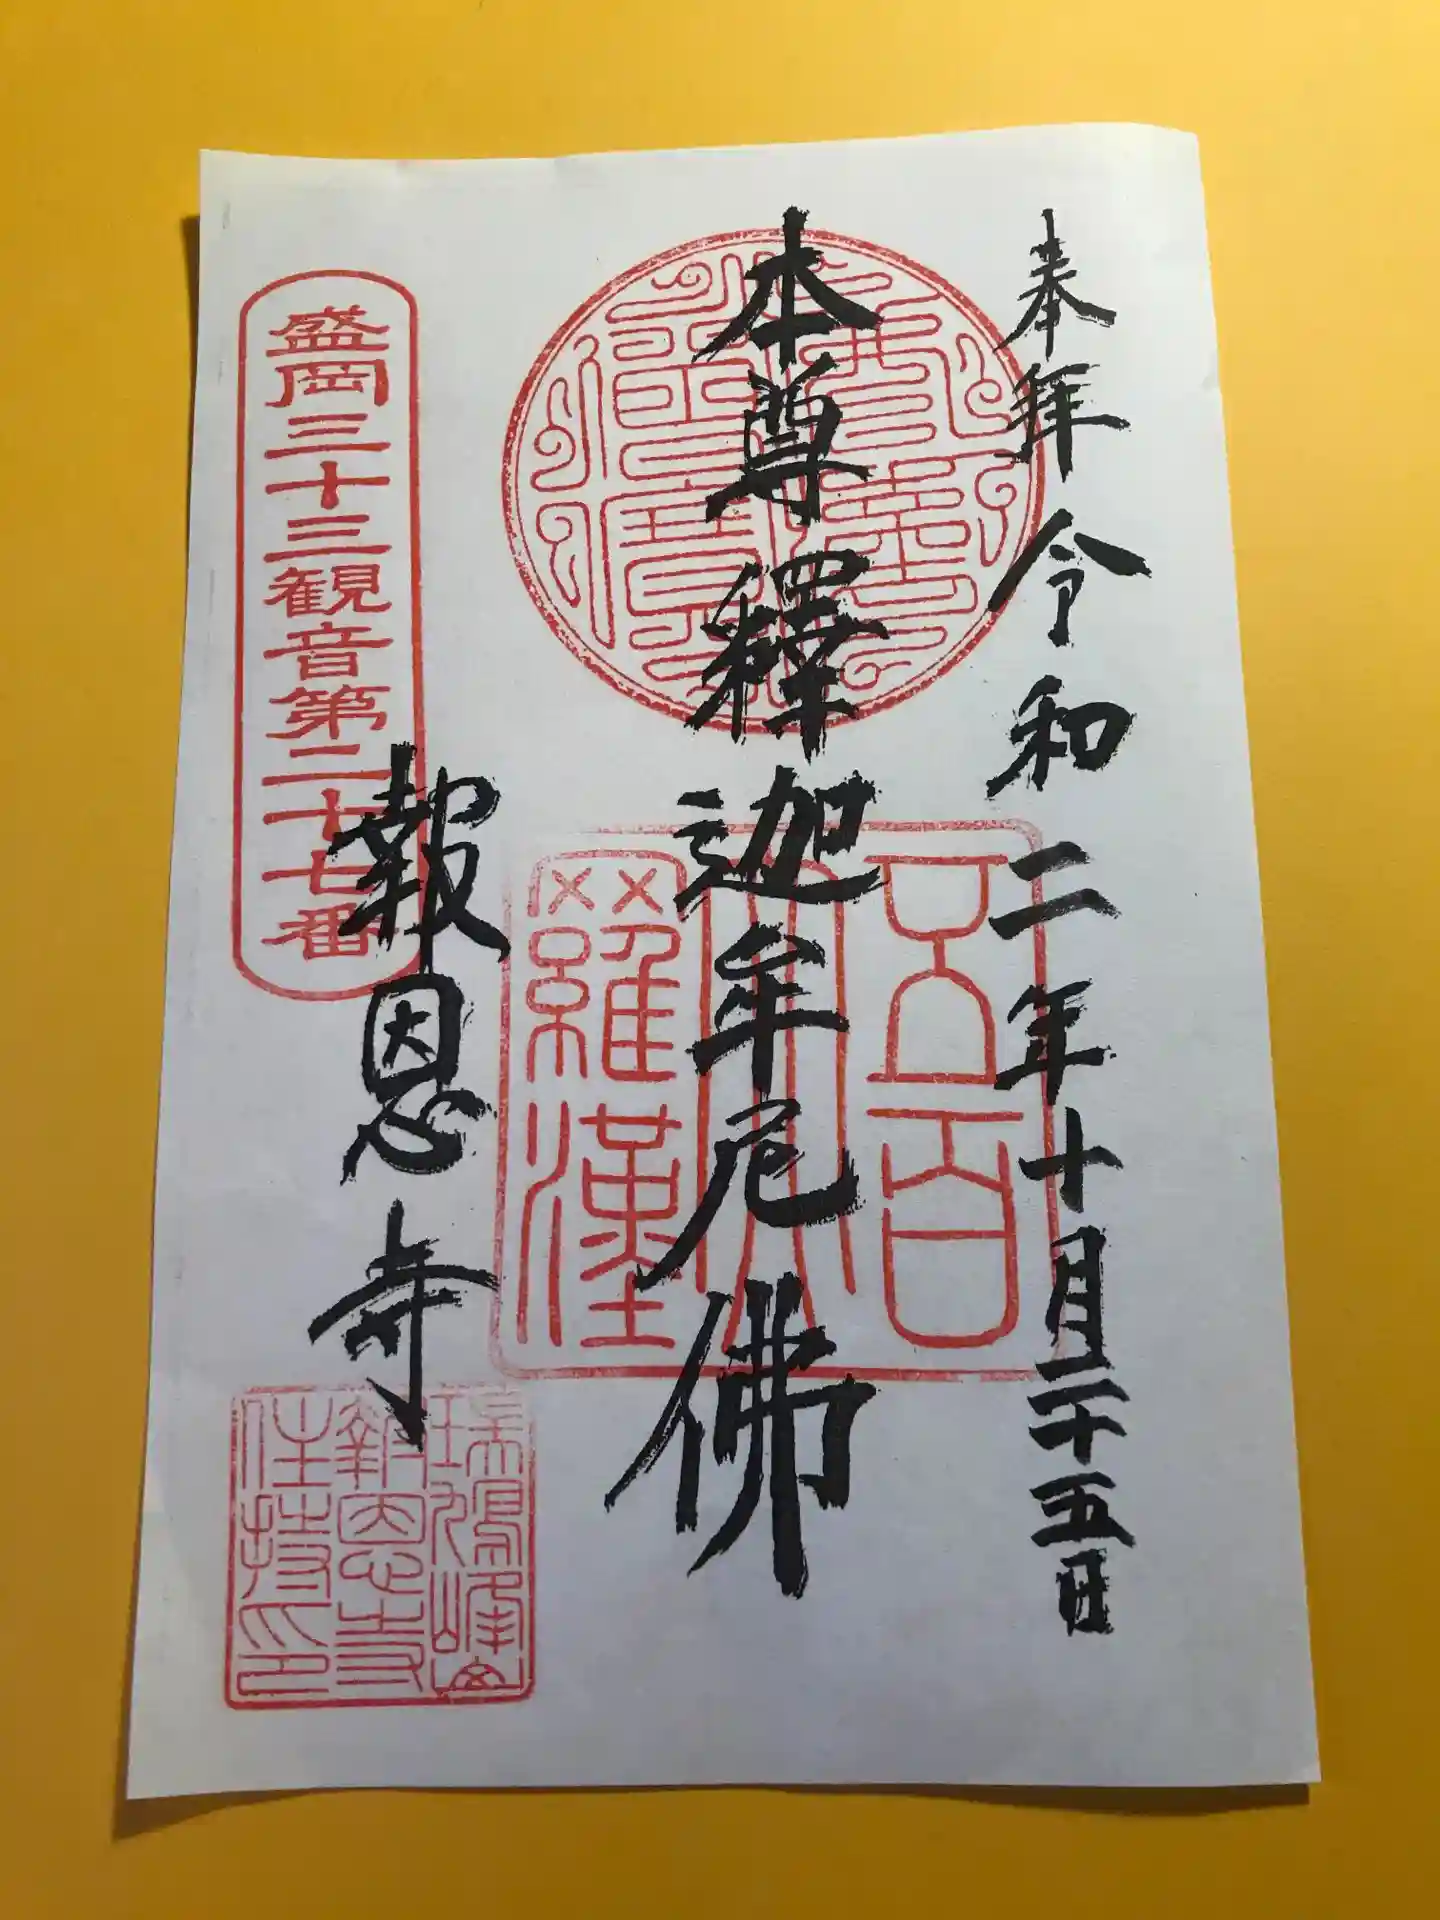 奉拝 令和二年十月二十五日
本尊釋迦牟尼佛
五百
大
羅漢
盛岡三十三観音第二十七番
報恩寺
瑞鳩峰山
報恩寺
住持印